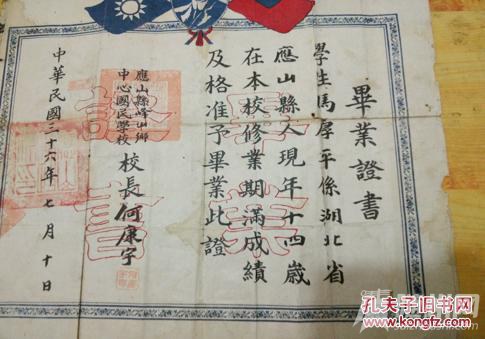 畢業證書
學生馬厚平係湖北省
應山縣人現年十四歲
在本校修業期滿成績
及格准予畢業此證
應山縣峰山鄉
中心國民學校
校長何康宇
中華民國三十六年七月十日
孔夫子旧书网